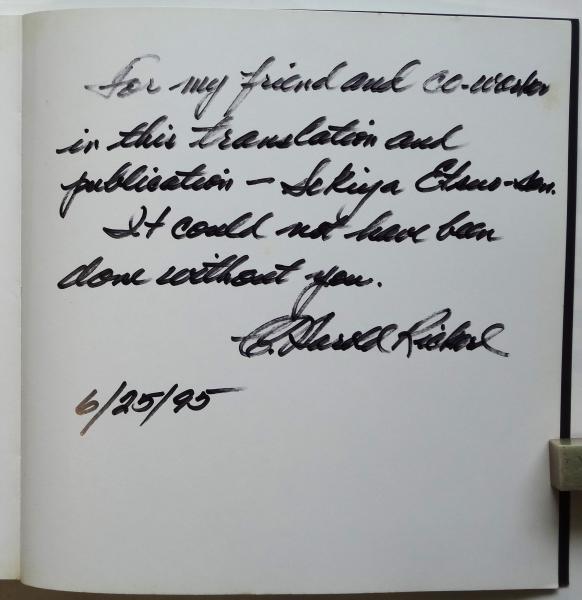 For my friend and co-worker
in this translation and
publication — Sekiya Etsuo-san.
It could not have been
done without you.
- C. Harold Rickard
6/25/95